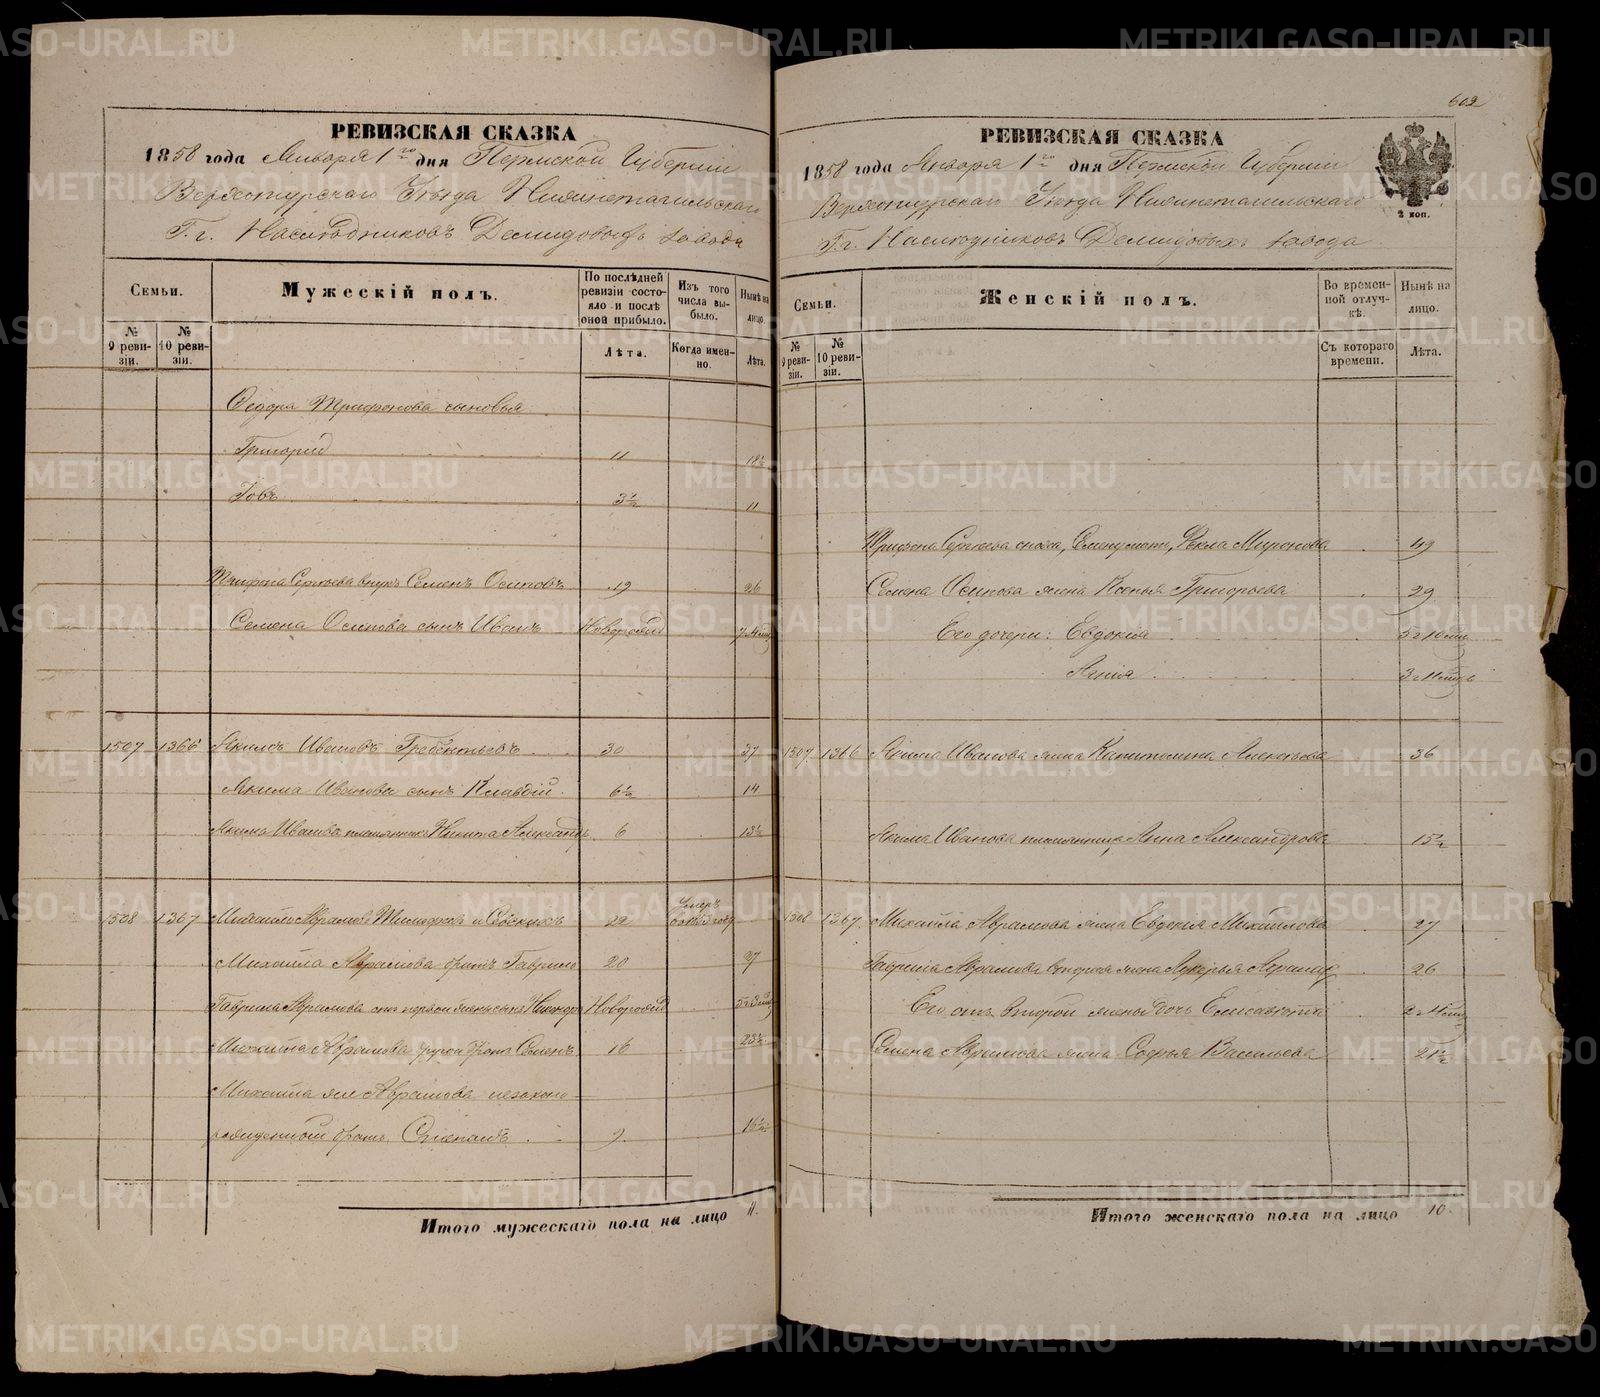 РЕВИЗСКАЯ СКАЗКА
1858 года Января 1го дня Пермской Губерніи
Верхотурскаго Уѣзда Нижнетагильскаго
Г.г. Наслѣдниковъ Демидовыхъ завода
Семьи.
Мужескій полъ.
По послѣдней ревизіи состояло и послѣ оной прибыло.
Изъ того числа выбыло.
Нынѣ на лицо.
№ 9 ревизіи.
№ 10 ревизіи.
Лѣта.
Когда именно.
Лѣта.
Федора Трифонова сыновья
Григорій 11 18½
Іовъ 3½ 11
Трифона Сергѣева внукъ Семенъ Осиповъ 19 26
Семена Осипова сынъ Иванъ Новорожд
1507 1366 Якимъ Ивановъ Гребентьевъ 30 37
Якима Иванова сынъ Клавдій 6½ 14
Якима Иванова племянникъ Никита Александр. 6 13½
1508 1367 Михайло Аврамовъ 22 умеръ
Михаила Аврамова братъ Гаврило 20 27
Гаврила Аврамова отъ первой жены сынъ Новорожд
Михаила Аврамова другой братъ Семенъ 16 23½
Михаила же Аврамова незаконо-
рожденный братъ Степанъ 9 16½
Итого мужескаго пола на лицо 11.
602
РЕВИЗСКАЯ СКАЗКА
1858 года Января 1го дня Пермской Губерніи
Верхотурскаго Уѣзда Нижнетагильскаго
Г.г. Наслѣдниковъ Демидовыхъ завода
2 коп.
Семьи.
Женскій полъ.
Во временной отлучкѣ.
Нынѣ на лицо.
№ 9 ревизіи.
№ 10 ревизіи.
Съ котораго времени.
Лѣта.
Трифона Сергѣева сноха, Семену мать, Фекла Миронова 49
Семена Осипова жена Ксенья Григорьева 29
Его дочери: Евдокія
Агнія
1507 1366 Якима Иванова жена Капитолина Алексѣева 36
Якима Иванова племянница Анна Александрова 15½
1508 1367 Михаила Аврамова жена Евдокія Михайлова 27
Гаврила Аврамова вторая жена Лукерья 26
Его отъ второй жены дочь Елисавета
Семена Аврамова жена Софья Васильева 21½
Итого женскаго пола на лицо 10.
METRIKI.GASO-URAL.RU